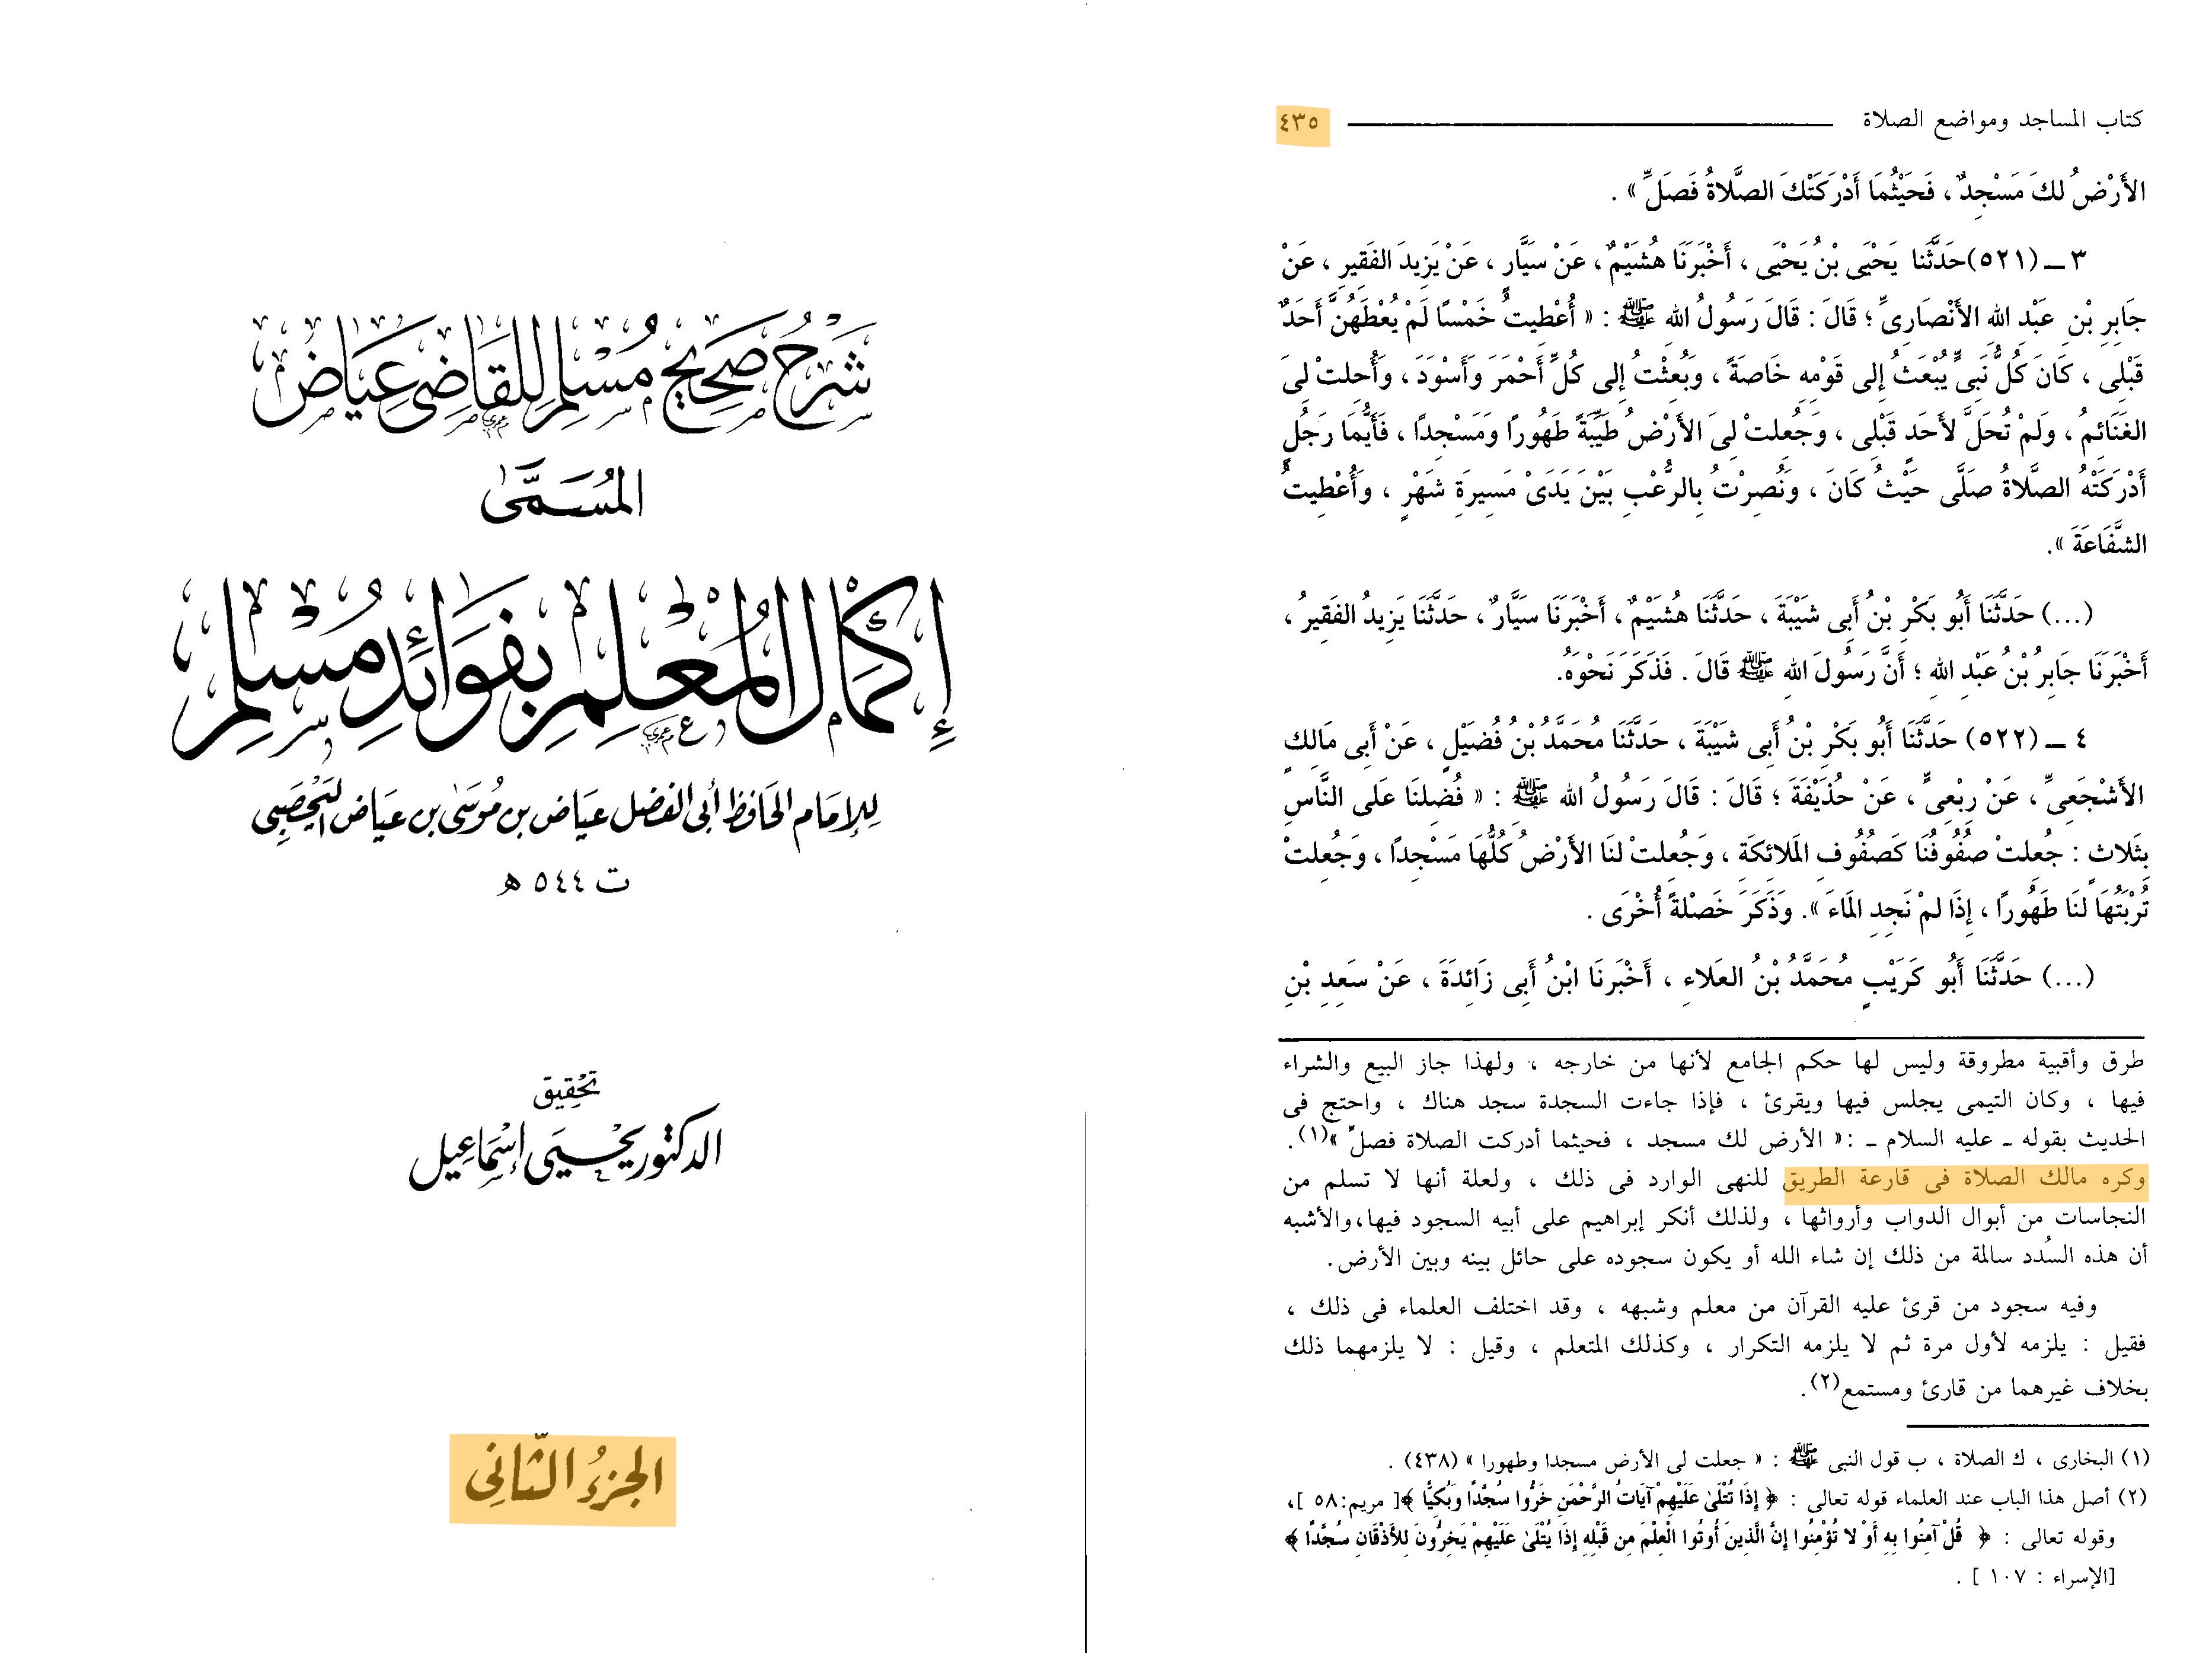 شَرْحُ صَحِيح مُسْلِم لِلقَاضِى عِيَاض
المُسَمَّى
إِكْمَالُ المُعْلِم بِفَوَائِدِ مُسْلِم
لِلإِمَام الحَافِظ أَبى الفَضل عيَاض بن مُوسَى بن عيَاض اليَحْصَبِى
ت ٥٤٤ هـ
تَحْقِيق
الدكتور يحْيَى إِسْمَاعِيل
الجزءُ الثَّانِى
كتاب المساجد ومواضع الصلاة
٤٣٥
الأَرْضُ لكَ مَسْجِدٌ ، فَحَيْثُمَا أَدْرَكَتْكَ الصَّلاةُ فَصَلِّ » .
٣ ــ (٥٢١) حَدَّثَنا يَحْيَى بْنُ يَحْيَى ، أَخْبَرَنَا هُشَيْمٌ ، عَنْ سَيَّارٍ ، عَنْ يَزِيدَ الفَقِيرِ ، عَنْ
جَابِرِ بْنِ عَبْدِ اللهِ الأَنْصَارِىِّ ؛ قَالَ : قَالَ رَسُولُ اللهِ ﷺ : « أُعْطِيتُ خَمْسًا لَمْ يُعْطَهُنَّ أَحَدٌ
قَبْلِى ، كَانَ كُلُّ نَبِىٍّ يُبْعَثُ إِلى قَوْمِهِ خَاصَةً ، وَبُعِثْتُ إِلى كُلِّ أَحْمَرَ وَأَسْوَدَ ، وَأُحِلتْ لِىَ
الغَنَائِمُ ، وَلَمْ تُحَلَّ لأَحَدٍ قَبْلِى ، وَجُعِلتْ لِىَ الأَرْضُ طَيِّبَةً طَهُورًا وَمَسْجِدًا ، فَأَيُّمَا رَجُلٍ
أَدْرَكَتْهُ الصَّلاةُ صَلَّى حَيْثُ كَانَ ، وَنُصِرْتُ بِالرُّعْبِ بَيْنَ يَدَىْ مَسِيرَةِ شَهْرٍ ، وَأُعْطِيتُ
الشَّفَاعَةَ ».
(...) حَدَّثَنَا أَبُو بَكْرِ بْنُ أَبِى شَيْبَةَ ، حَدَّثَنَا هُشَيْمٌ ، أَخْبَرَنَا سَيَّارٌ ، حَدَّثَنَا يَزِيدُ الفَقِيرُ ،
أَخْبَرَنَا جَابِرُ بْنُ عَبْدِ اللهِ ؛ أَنَّ رَسُولَ اللهِ ﷺ قَالَ . فَذَكَرَ نَحْوَهُ.
٤ ــ (٥٢٢) حَدَّثَنَا أَبُو بَكْرِ بْنُ أَبِى شَيْبَةَ ، حَدَّثَنَا مُحَمَّدُ بْنُ فُضَيْلٍ ، عَنْ أَبِى مَالِكٍ
الأَشْجَعِىِّ ، عَنْ رِبْعِىٍّ ، عَنْ حُذَيْفَةَ ؛ قَالَ : قَالَ رَسُولُ اللهِ ﷺ : « فُضِلنَا عَلى النَّاسِ
بِثَلاثٍ : جُعِلتْ صُفُوفُنَا كَصُفُوفِ المَلائِكَةِ ، وَجُعِلتْ لنَا الأَرْضُ كُلُّهَا مَسْجِدًا ، وَجُعِلتْ
تُرْبَتُهَا لنَا طَهُورًا ، إِذَا لمْ نَجِدِ المَاءَ ». وَذَكَرَ خَصْلةً أُخْرَى .
(...) حَدَّثَنَا أَبُو كُرَيْبٍ مُحَمَّدُ بْنُ العَلاءِ ، أَخْبَرنَا ابْنُ أَبِى زَائِدَةَ ، عَنْ سَعدِ بْنِ
طرق وأقبية مطروقة وليس لها حكم الجامع لأنها من خارجه ، ولهذا جاز البيع والشراء
فيها ، وكان التيمى يجلس فيها ويقرئ ، فإذا جاءت السجدة سجد هناك ، واحتج فى
الحديث بقوله ـ عليه السلام ـ :« الأرض لك مسجد ، فحيثما أدركت الصلاة فصلِّ »(١).
وكره مالك الصلاة فى قارعة الطريق للنهى الوارد فى ذلك ، ولعلة أنها لا تسلم من
النجاسات من أبوال الدواب وأرواثها ، ولذلك أنكر إبراهيم على أبيه السجود فيها،والأشبه
أن هذه السُدد سالمة من ذلك إن شاء الله أو يكون سجوده على حائل بينه وبين الأرض.
وفيه سجود من قرئ عليه القرآن من معلم وشبهه ، وقد اختلف العلماء فى ذلك ،
فقيل : يلزمه لأول مرة ثم لا يلزمه التكرار ، وكذلك المتعلم ، وقيل : لا يلزمهما ذلك
بخلاف غيرهما من قارئ ومستمع(٢).
(١) البخارى ، ك الصلاة ، ب قول النبى ﷺ : « جعلت لى الأرض مسجدا وطهورا » (٤٣٨) .
(٢) أصل هذا الباب عند العلماء قوله تعالى : ﴿ إِذَا تُتْلَىٰ عَلَيْهِمْ آيَاتُ الرَّحْمَنِ خَرُّوا سُجَّدًا وَبُكِيًّا ﴾[ مريم:٥٨ ]،
وقوله تعالى : ﴿ قُلْ آمِنُوا بِهِ أَوْ لا تُؤْمِنُوا إِنَّ الَّذِينَ أُوتُوا الْعِلْمَ مِن قَبْلِهِ إِذَا يُتْلَىٰ عَلَيْهِمْ يَخِرُّونَ لِلأَذْقَانِ سُجَّدًا ﴾
[الإسراء : ١٠٧ ] .